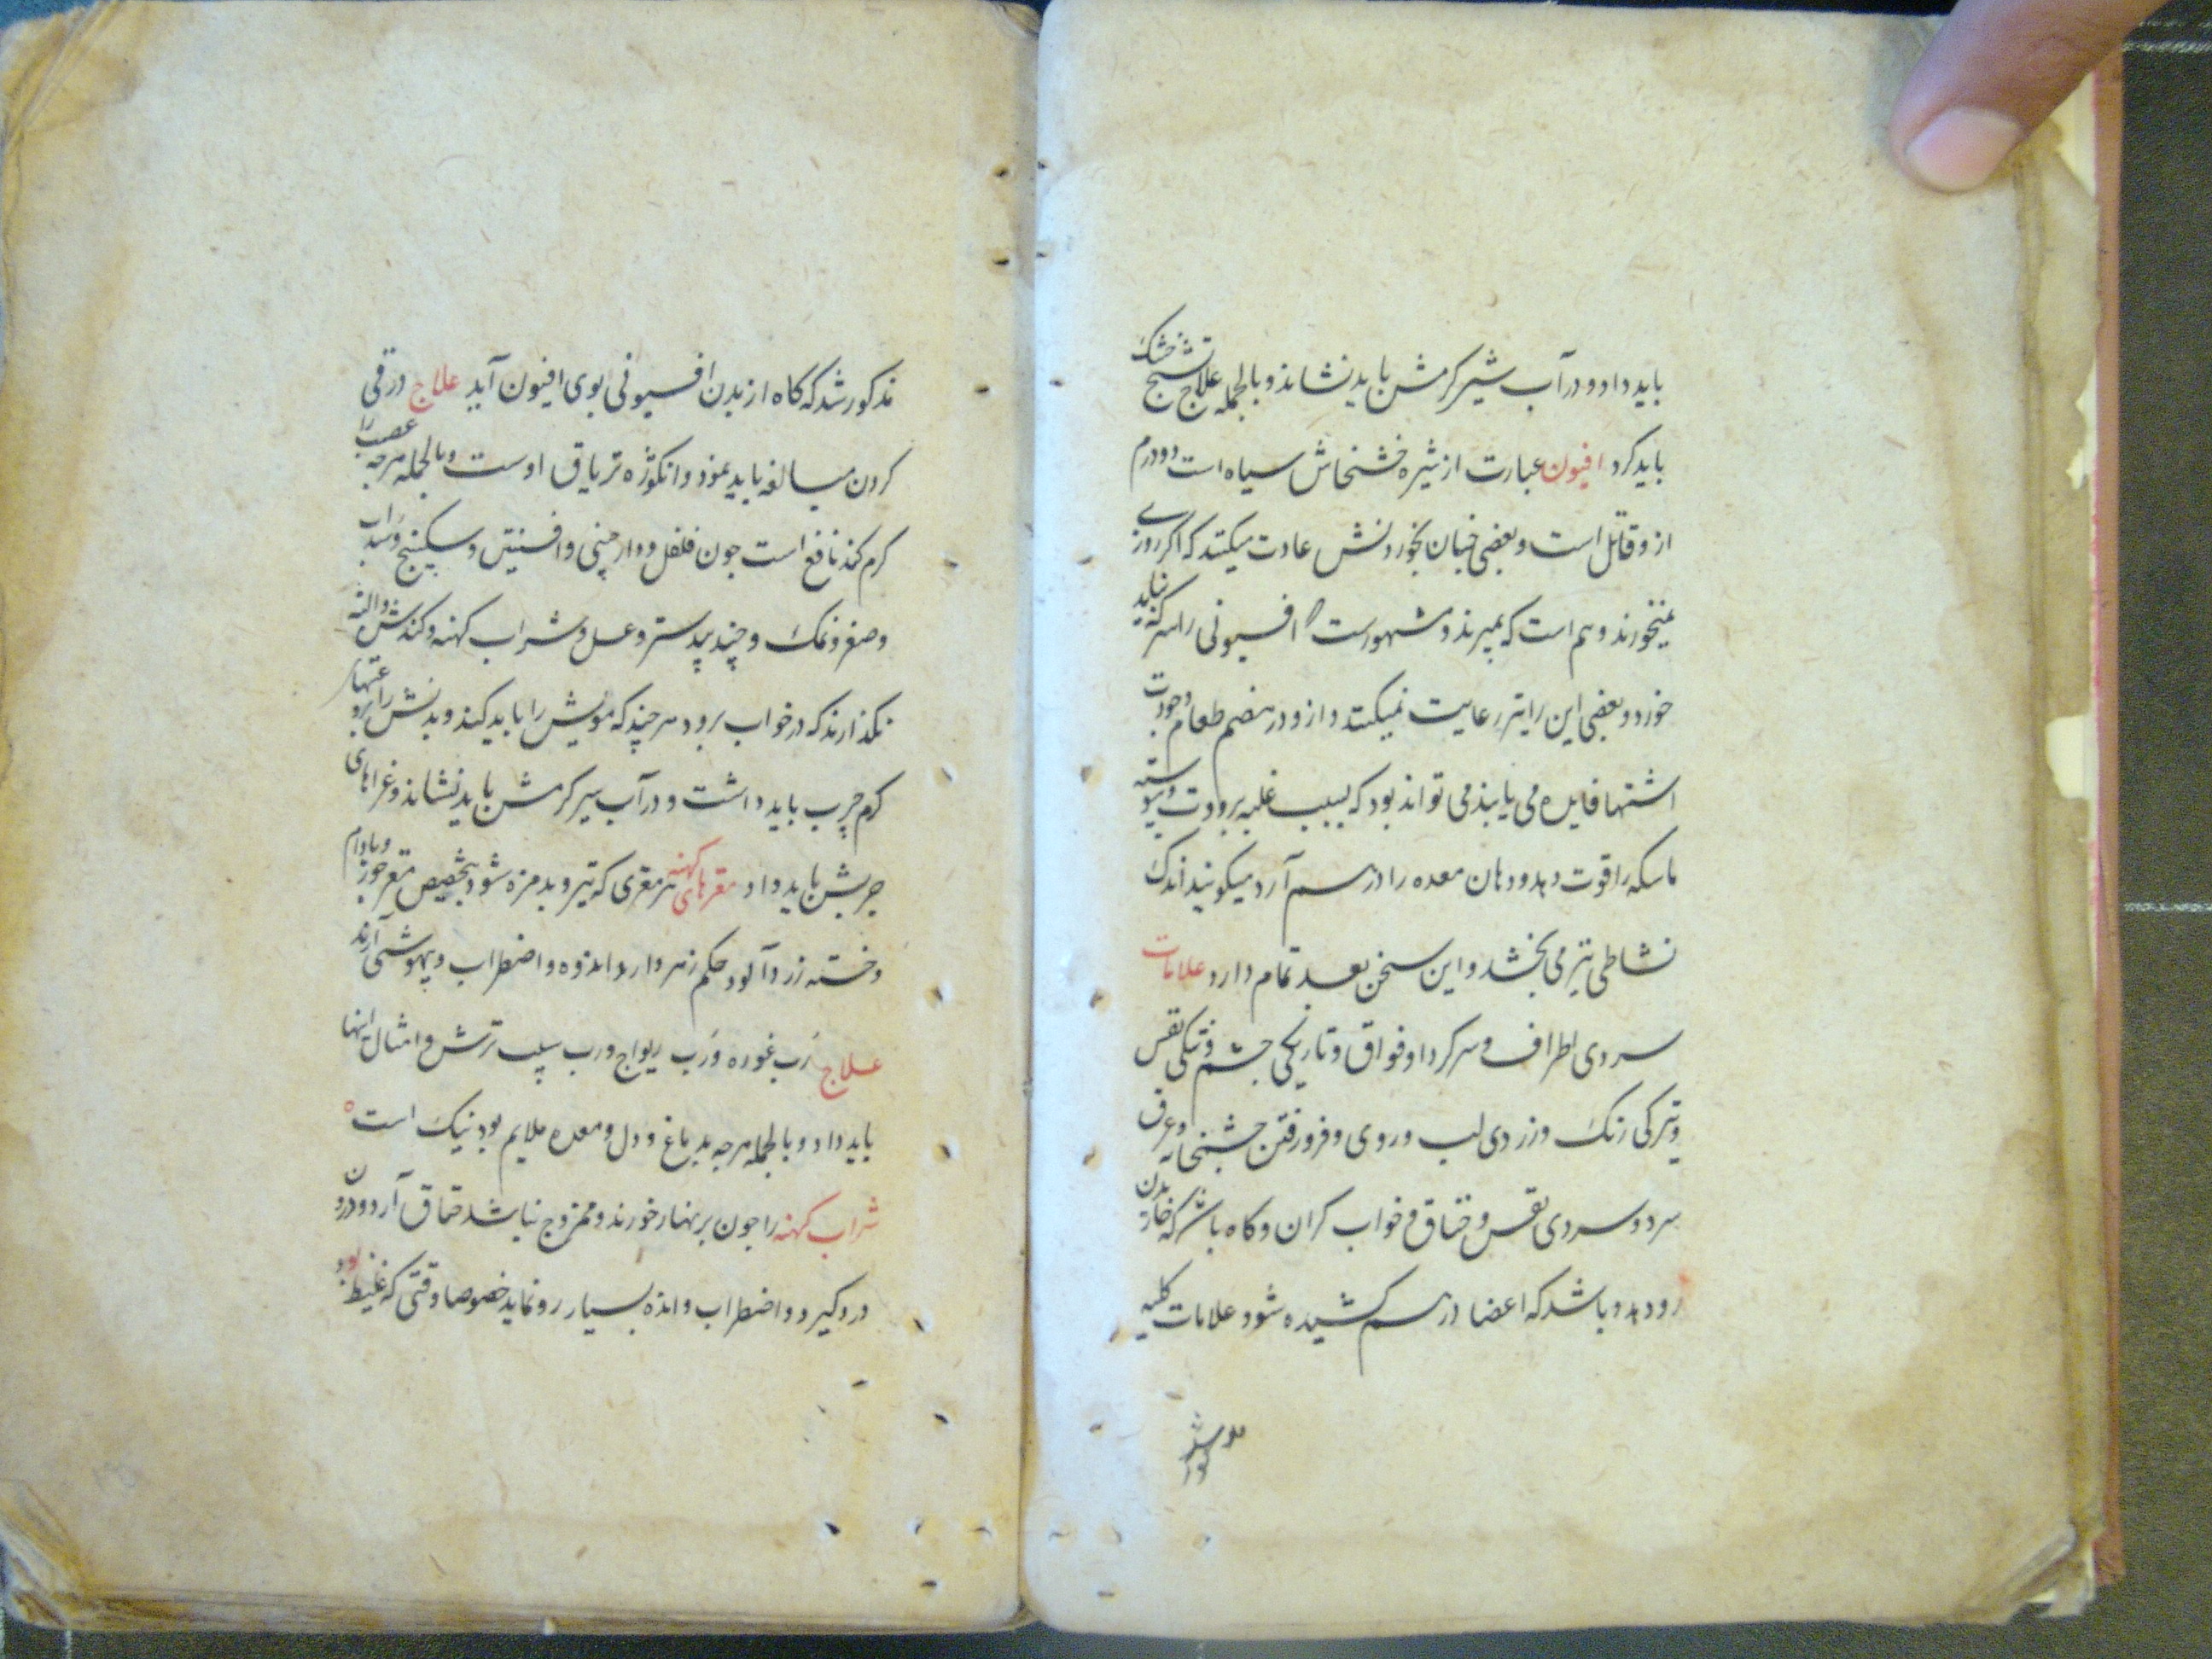 باید داد و در آب شیر کرمش باید نشاند و بالجمله علاج تشنج خشک
باید کرد افیون عبارت از شیره خشخاش سیاه است دو درم
ازو قاتل است و بعضی چنان بخوردنش عادت میکنند که اگر روزی
نمیخورند وهم است که بمیرند و مشهورست که افیونی را سرکه نباید
خورد و بعضی این را نیز رعایت نمیکنند و ازو در هضم طعام وجودت
اشتها فایده می یابند می تواند بود که بسبب غلبه برودت و پیوسته
ماسکه را قوت دهد و دهان معده را در هم آرد میگویند اندک
نشاطی نیز می بخشد و این سخن بعد تمام دارد علامات
سردی اطراف و سر کردا و فواق و تاریکی چشم و تنگی نفس
و تیرکی رنک و زردی لب و روی و فرو رفتن چشمخانه و عرق
سرد و سردی نفس و خناق و خواب کران و کاه باشد که خارش بدن
رو دهد و باشد که اعضا در هم کشیده شود علامات کلیه
مذکور شد
مذکور شد که کاه از بدن افیونی بوی افیون آید علاج در قی
کردن مبالغه باید نمود و انکوزه تریاق اوست و بالجمله هرجه عصب را
کرم کند نافع است جون فلفل و دارچینی و افسنتین و سکبینج و سداب
و صعتر و نمک و جندبیدستر و عسل و شراب کهنه و کندش و البته
نکذارند که در خواب برود هر چند که مویش را باید کند و بدنش را بروغنهای
کرم چرب باید داشت و در آب سیر کرمش باید نشاند و غذاهای
چربش باید داد مغزهای کهنه هر مغزی که تیز و بدمزه شود بتخصیص مغز جوز و بادام
و خسته زردآلود حکم زهر دارد اندوه و اضطراب و بیهوشی آرند
علاج رب غوره و رب ریواج و رب سیب ترش و امثال اینها
باید داد و بالجمله هرجه بدماغ و دل و معده ملایم بود نیک است
شراب کهنه را جون بر نهار خورند و ممزوج نباشد خناق آرد و درون
درد کیرد و اضطراب و اندوه بسیار رو نماید خصوصا وقتی که غلیظ بود